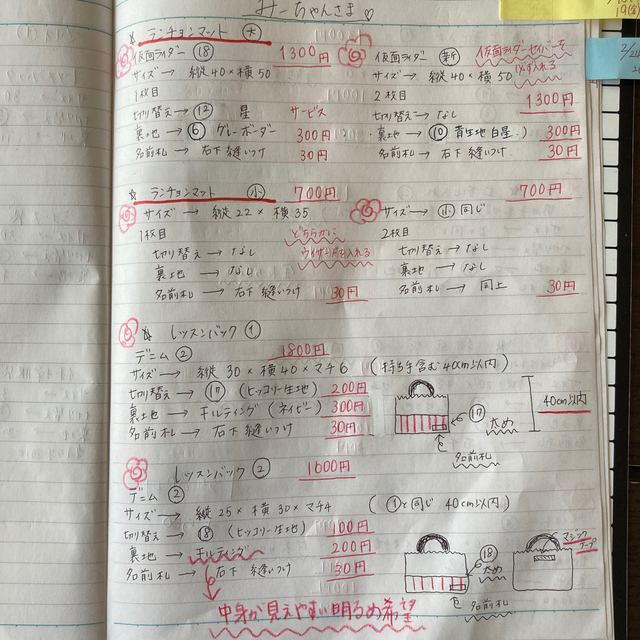 みーちゃんさま♡
19(金)
2/24
☆ ランチョンマット 大
仮面ライダー ⑱ 1300円
サイズ → 縦40×横50
1枚目
切り替え → ⑫ 星 サービス
裏地 → ⑥ グレーボーダー 300円
名前札 → 右下縫いつけ 30円
仮面ライダー 新 仮面ライダーセイバーを
必ず入れる
サイズ → 縦40×横50
2枚目 1300円
切り替え → なし
裏地 → ⑩ 青生地白星 300円
名前札 → 右下縫いつけ 30円
☆ ランチョンマット 小 700円
サイズ → 縦22×横35
1枚目 どちらかに
切り替え → なし
裏地 → なし
名前札 → 右下縫いつけ 30円
700円
サイズ → 小同じ
2枚目
切り替え → なし
裏地 → なし
名前札 → 同上 30円
☆ レッスンバック ①
デニム ② 1800円
サイズ → 縦30×横40×マチ6 (持ち手含む40cm以内)
切り替え → ⑰ (ヒッコリー生地) 200円
裏地 → キルティング(ネイビー) 300円
名前札 → 右下縫いつけ 30円
⑰
太め
名前札
40cm以内
☆ レッスンバック ② 1600円
デニム ②
サイズ → 縦25×横30×マチ4 (①と同じ 40cm以内)
切り替え → ⑱ (ヒッコリー生地) 100円
裏地 → キルティング 200円
名前札 → 右下縫いつけ 30円
中身が見えやすい明るめ希望
⑱
太め
名前札
マジック
テープ